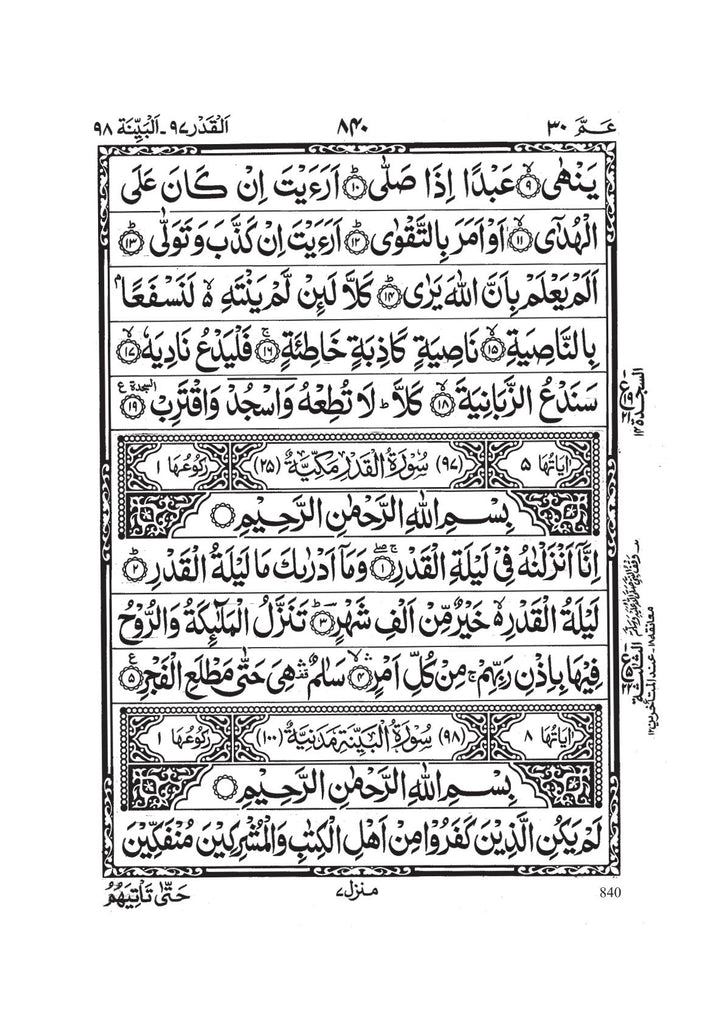 عَـمَّ ٣٠
٨٤٠
اَلْقَدْر ٩٧ - اَلْبَيِّنَة ٩٨
يَنْهٰىۙ‏﴿۹﴾ عَبْدًا اِذَا صَلّٰىؕ‏﴿۱۰﴾ اَرَءَيْتَ اِنْ كَانَ عَلَى
الْهُدٰٓىۙ‏﴿۱۱﴾ اَوْ اَمَرَ بِالتَّقْوٰىؕ‏﴿۱۲﴾ اَرَءَيْتَ اِنْ كَذَّبَ وَتَوَلّٰىؕ‏﴿۱۳﴾
اَلَمْ يَعْلَمْ بِاَنَّ اللّٰهَ يَرٰىؕ‏﴿۱۴﴾ كَلَّا لَئِنْ لَّمْ يَنْتَهِ ۙ۬ لَنَسْفَعًاۢ
بِالنَّاصِيَةِۙ‏﴿۱۵﴾ نَاصِيَةٍ كَاذِبَةٍ خَاطِئَةٍۚ‏﴿۱۶﴾ فَلْيَدْعُ نَادِيَهٗۙ‏﴿۱۷﴾
سَنَدْعُ الزَّبَانِيَةَۙ‏﴿۱۸﴾ كَلَّاؕ لَا تُطِعْهُ وَاسْجُدْ وَاقْتَرِبْ السجدة ع ﴿۱۹﴾
اٰيَاتُهَا ٥ (٩٧) سُوْرَةُ الْقَدْرِ مَكِّيَّةٌ (٢٥) رُكُوْعُهَا ١
بِسْمِ اللّٰهِ الرَّحْمٰنِ الرَّحِيْمِ
اِنَّآ اَنْزَلْنٰهُ فِيْ لَيْلَةِ الْقَدْرِ ۚۖ‏﴿۱﴾ وَمَآ اَدْرٰىكَ مَا لَيْلَةُ الْقَدْرِؕ‏﴿۲﴾
لَيْلَةُ الْقَدْرِ ۙ۬ خَيْرٌ مِّنْ اَلْفِ شَهْرٍؕ‏﴿۳﴾ تَنَزَّلُ الْمَلٰٓئِكَةُ وَالرُّوْحُ
فِيْهَا بِاِذْنِ رَبِّهِمْۚ مِنْ كُلِّ اَمْرٍۙۛ‏﴿۴﴾ سَلٰمٌ ۛ هِيَ حَتّٰى مَطْلَعِ الْفَجْرِ﴿۵﴾
اٰيَاتُهَا ٨ (٩٨) سُوْرَةُ الْبَيِّنَةِ مَدَنِيَّةٌ (١٠٠) رُكُوْعُهَا ١
بِسْمِ اللّٰهِ الرَّحْمٰنِ الرَّحِيْمِ
لَمْ يَكُنِ الَّذِيْنَ كَفَرُوْا مِنْ اَهْلِ الْكِتٰبِ وَالْمُشْرِكِيْنَ مُنْفَكِّيْنَ
840
منزل ٧
حَتّٰى تَاْتِيَهُمُ
السجدة ١٤
معانقة ١٨ عند المتأخرين ١٢